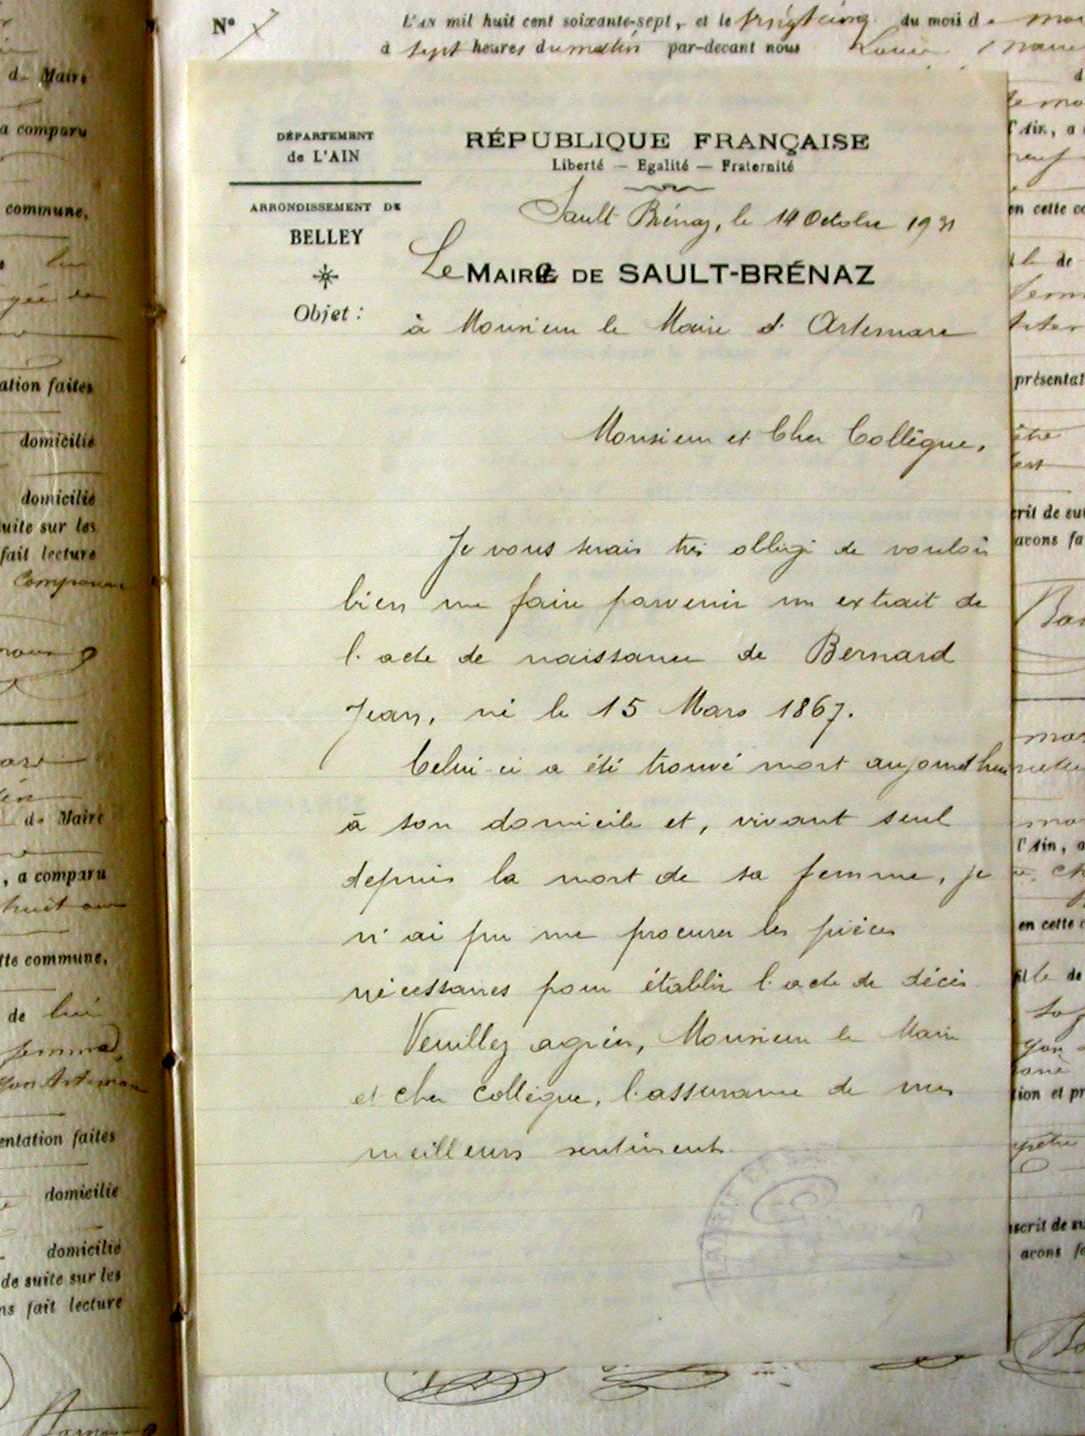 N°
L'AN mil huit cent soixante-sept, et le vingt cinq du mois d
à sept heures du matin par-devant nous Louis
DÉPARTEMENT
de L'AIN
ARRONDISSEMENT DE
BELLEY
Objet :
RÉPUBLIQUE FRANÇAISE
Liberté — Egalité — Fraternité
Sault-Brénaz, le 14 Octobre 1931
Le MAIRE DE SAULT-BRÉNAZ
à Monsieur le Maire d'Artemare
Monsieur et Cher Collègue,
Je vous serais très obligé de vouloir
bien me faire parvenir un extrait de
l'acte de naissance de Bernard
Jean, né le 15 Mars 1867.
Celui-ci a été trouvé mort aujourd'hui
à son domicile et, vivant seul
depuis la mort de sa femme, je
n'ai pu me procurer les pièces
nécessaires pour établir l'acte de décès
Veuillez agréer, Monsieur le Maire
et cher Collègue, l'assurance de mes
meilleurs sentiments.
de Maire
a comparu
commune,
ation faites
domicilié
domicilié
suite sur les
fait lecture
de Maire
, a comparu
huit ans
tte commune,
de lui
femme
entation faites
domicilié
domicilié
de suite sur les
ns fait lecture
l'Ain, a
en cette co
de
présentat
être
crit de sui
avons fa
l'Ain, a
en cette c
de
tion et pr
scrit de su
avons fa